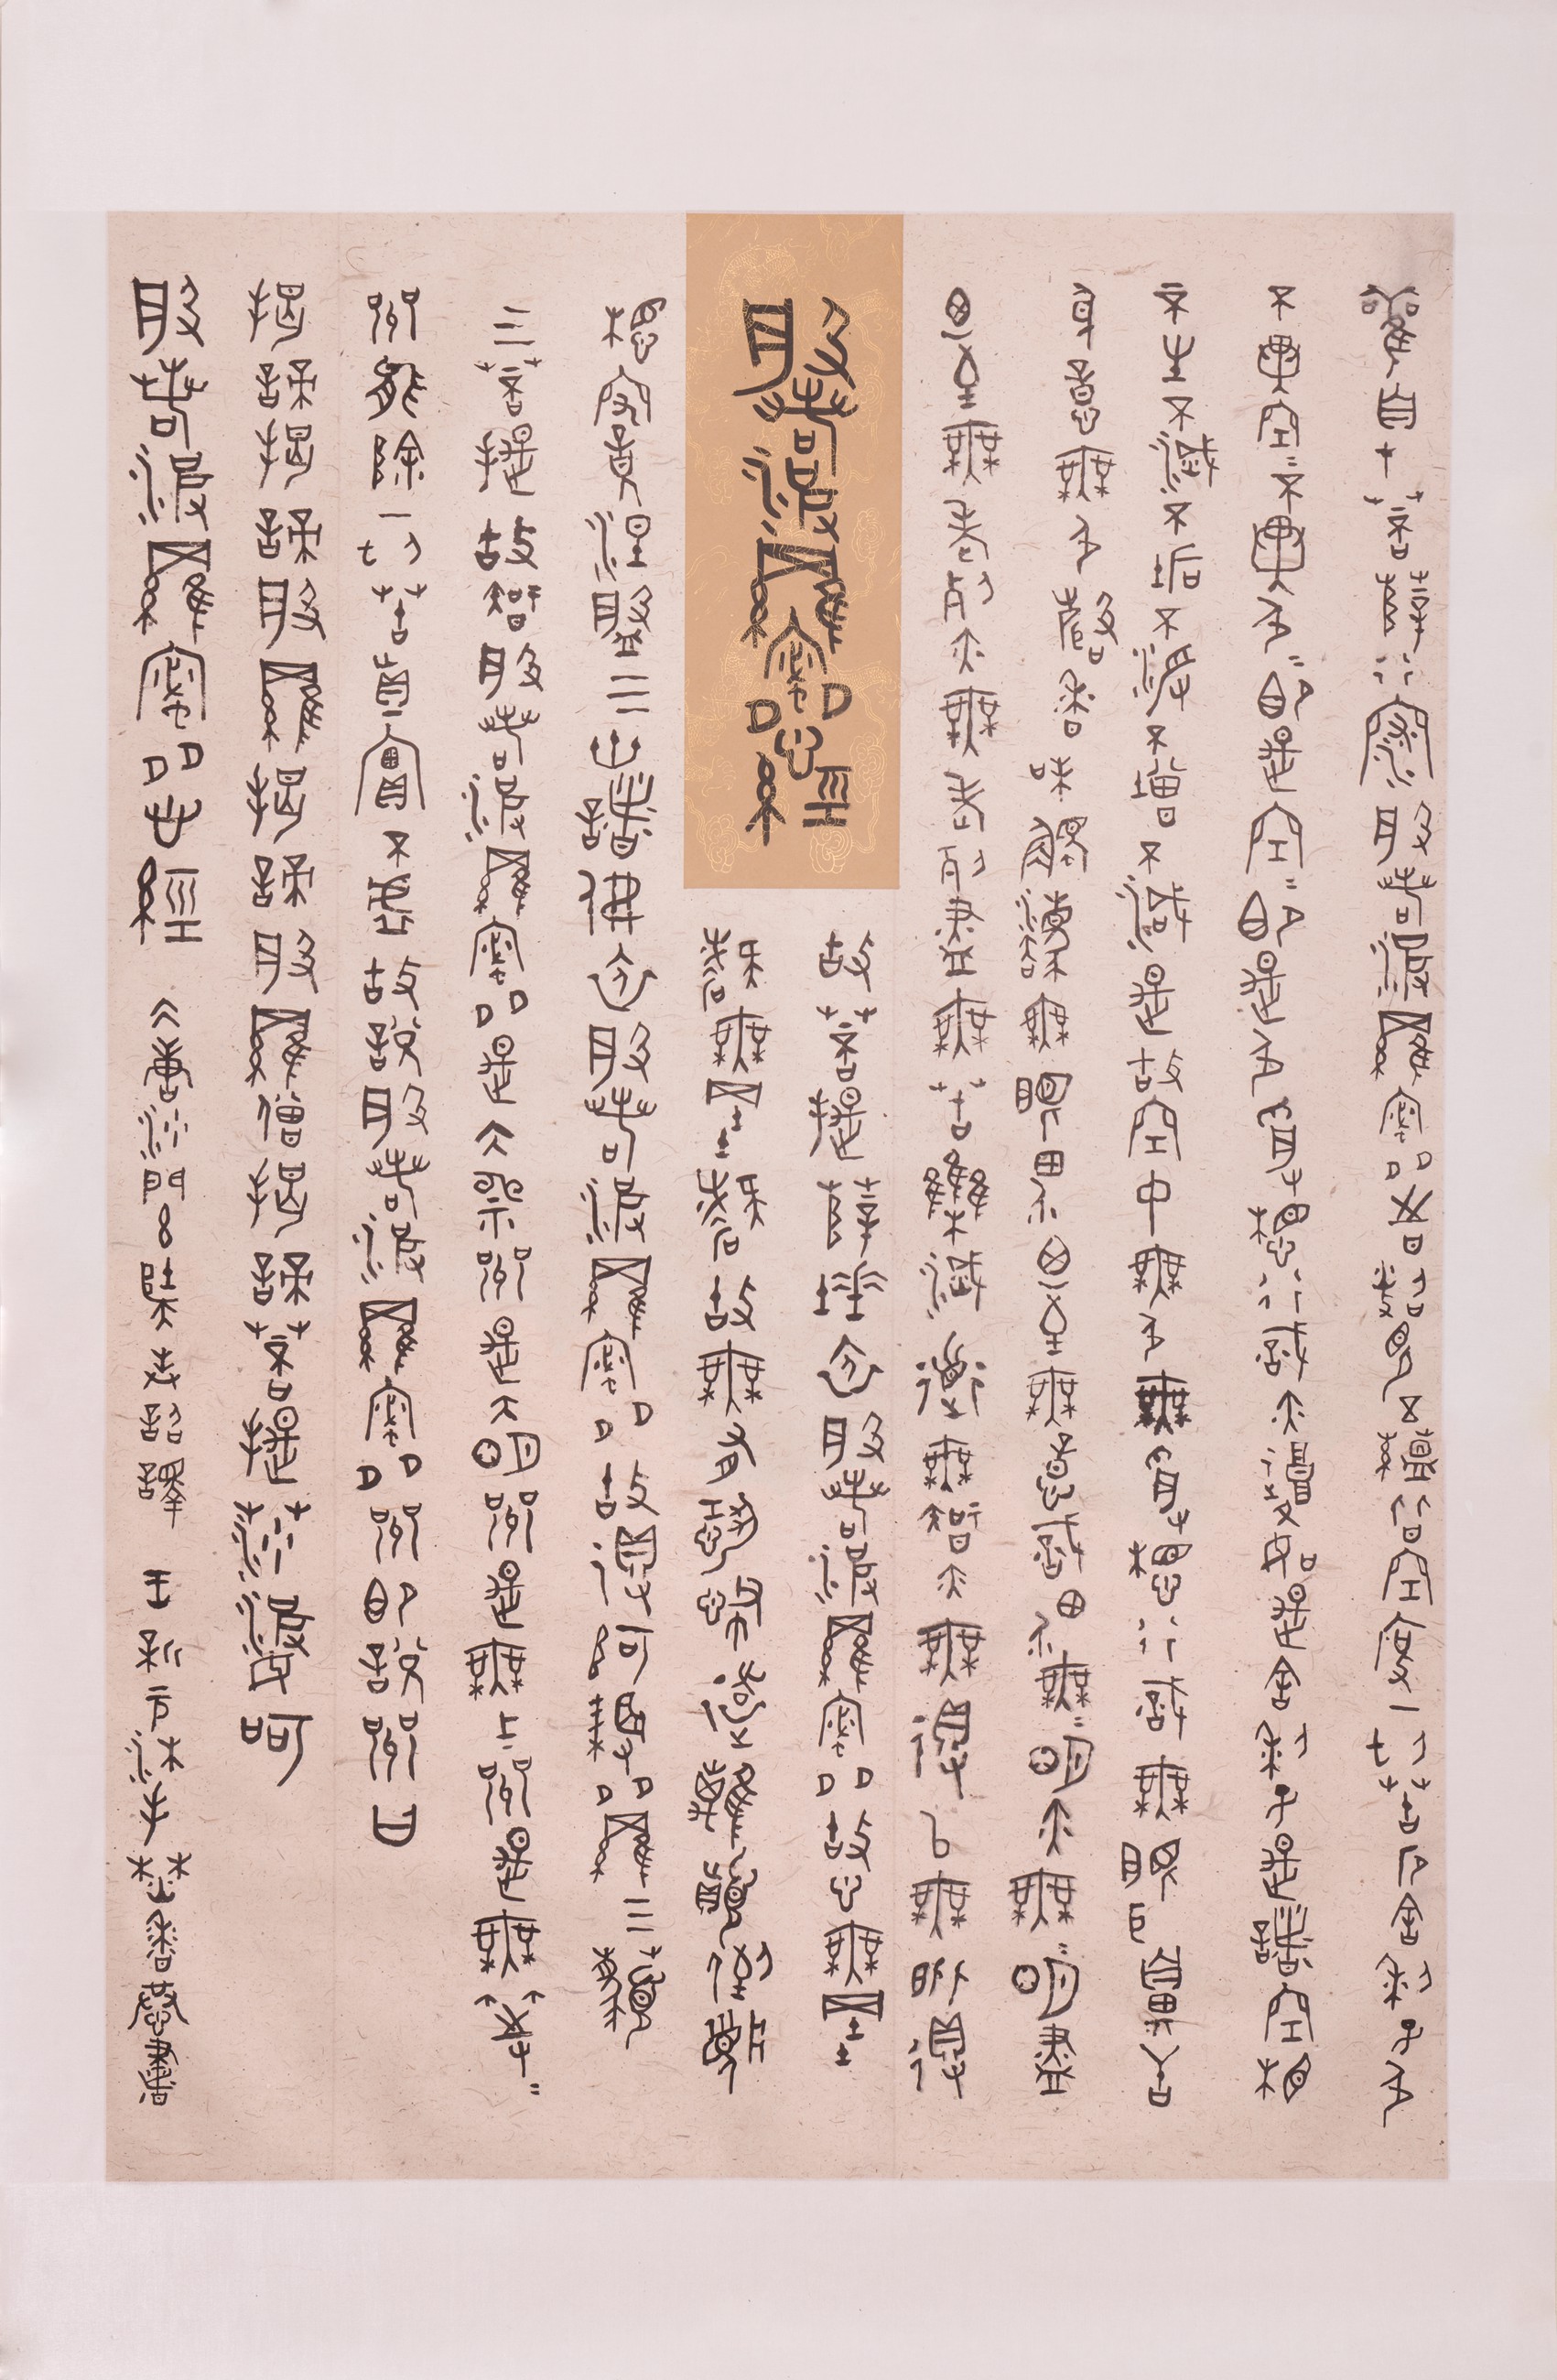 觀自在菩薩行深般若波羅蜜多時照見五蘊皆空度一切苦厄舍利子色
不異空=不異色=即是空=即是色受想行識亦復如是舍利子是諸空相
不生不滅不垢不淨不增不減是故空中無色無受想行識無眼耳鼻舌
身意無色聲香味觸法無眼界乃至無意識界無=明亦無=明盡
乃至無老死亦無老死盡無苦集滅道無智亦無得以無所得
般若波羅蜜多心經
故菩提薩埵依般若波羅蜜多故心無罣
礙無罣礙故無有恐怖遠離顛倒夢
想究竟涅槃三世諸佛依般若波羅蜜多故得阿耨多羅三藐
三菩提故知般若波羅蜜多是大神咒是大明咒是無上咒是無等=
咒能除一切苦真實不虛故說般若波羅蜜多咒即說咒曰
揭諦揭諦般羅揭諦般羅僧揭諦菩提薩婆訶
般若波羅蜜多心經 大唐沙門玄奘奉詔譯 王新沐手焚香恭書